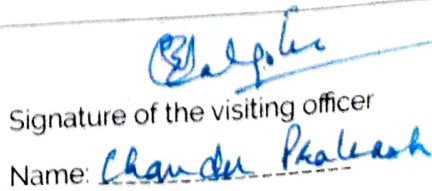 Signature of the visiting officer
Name: Chander Prakash